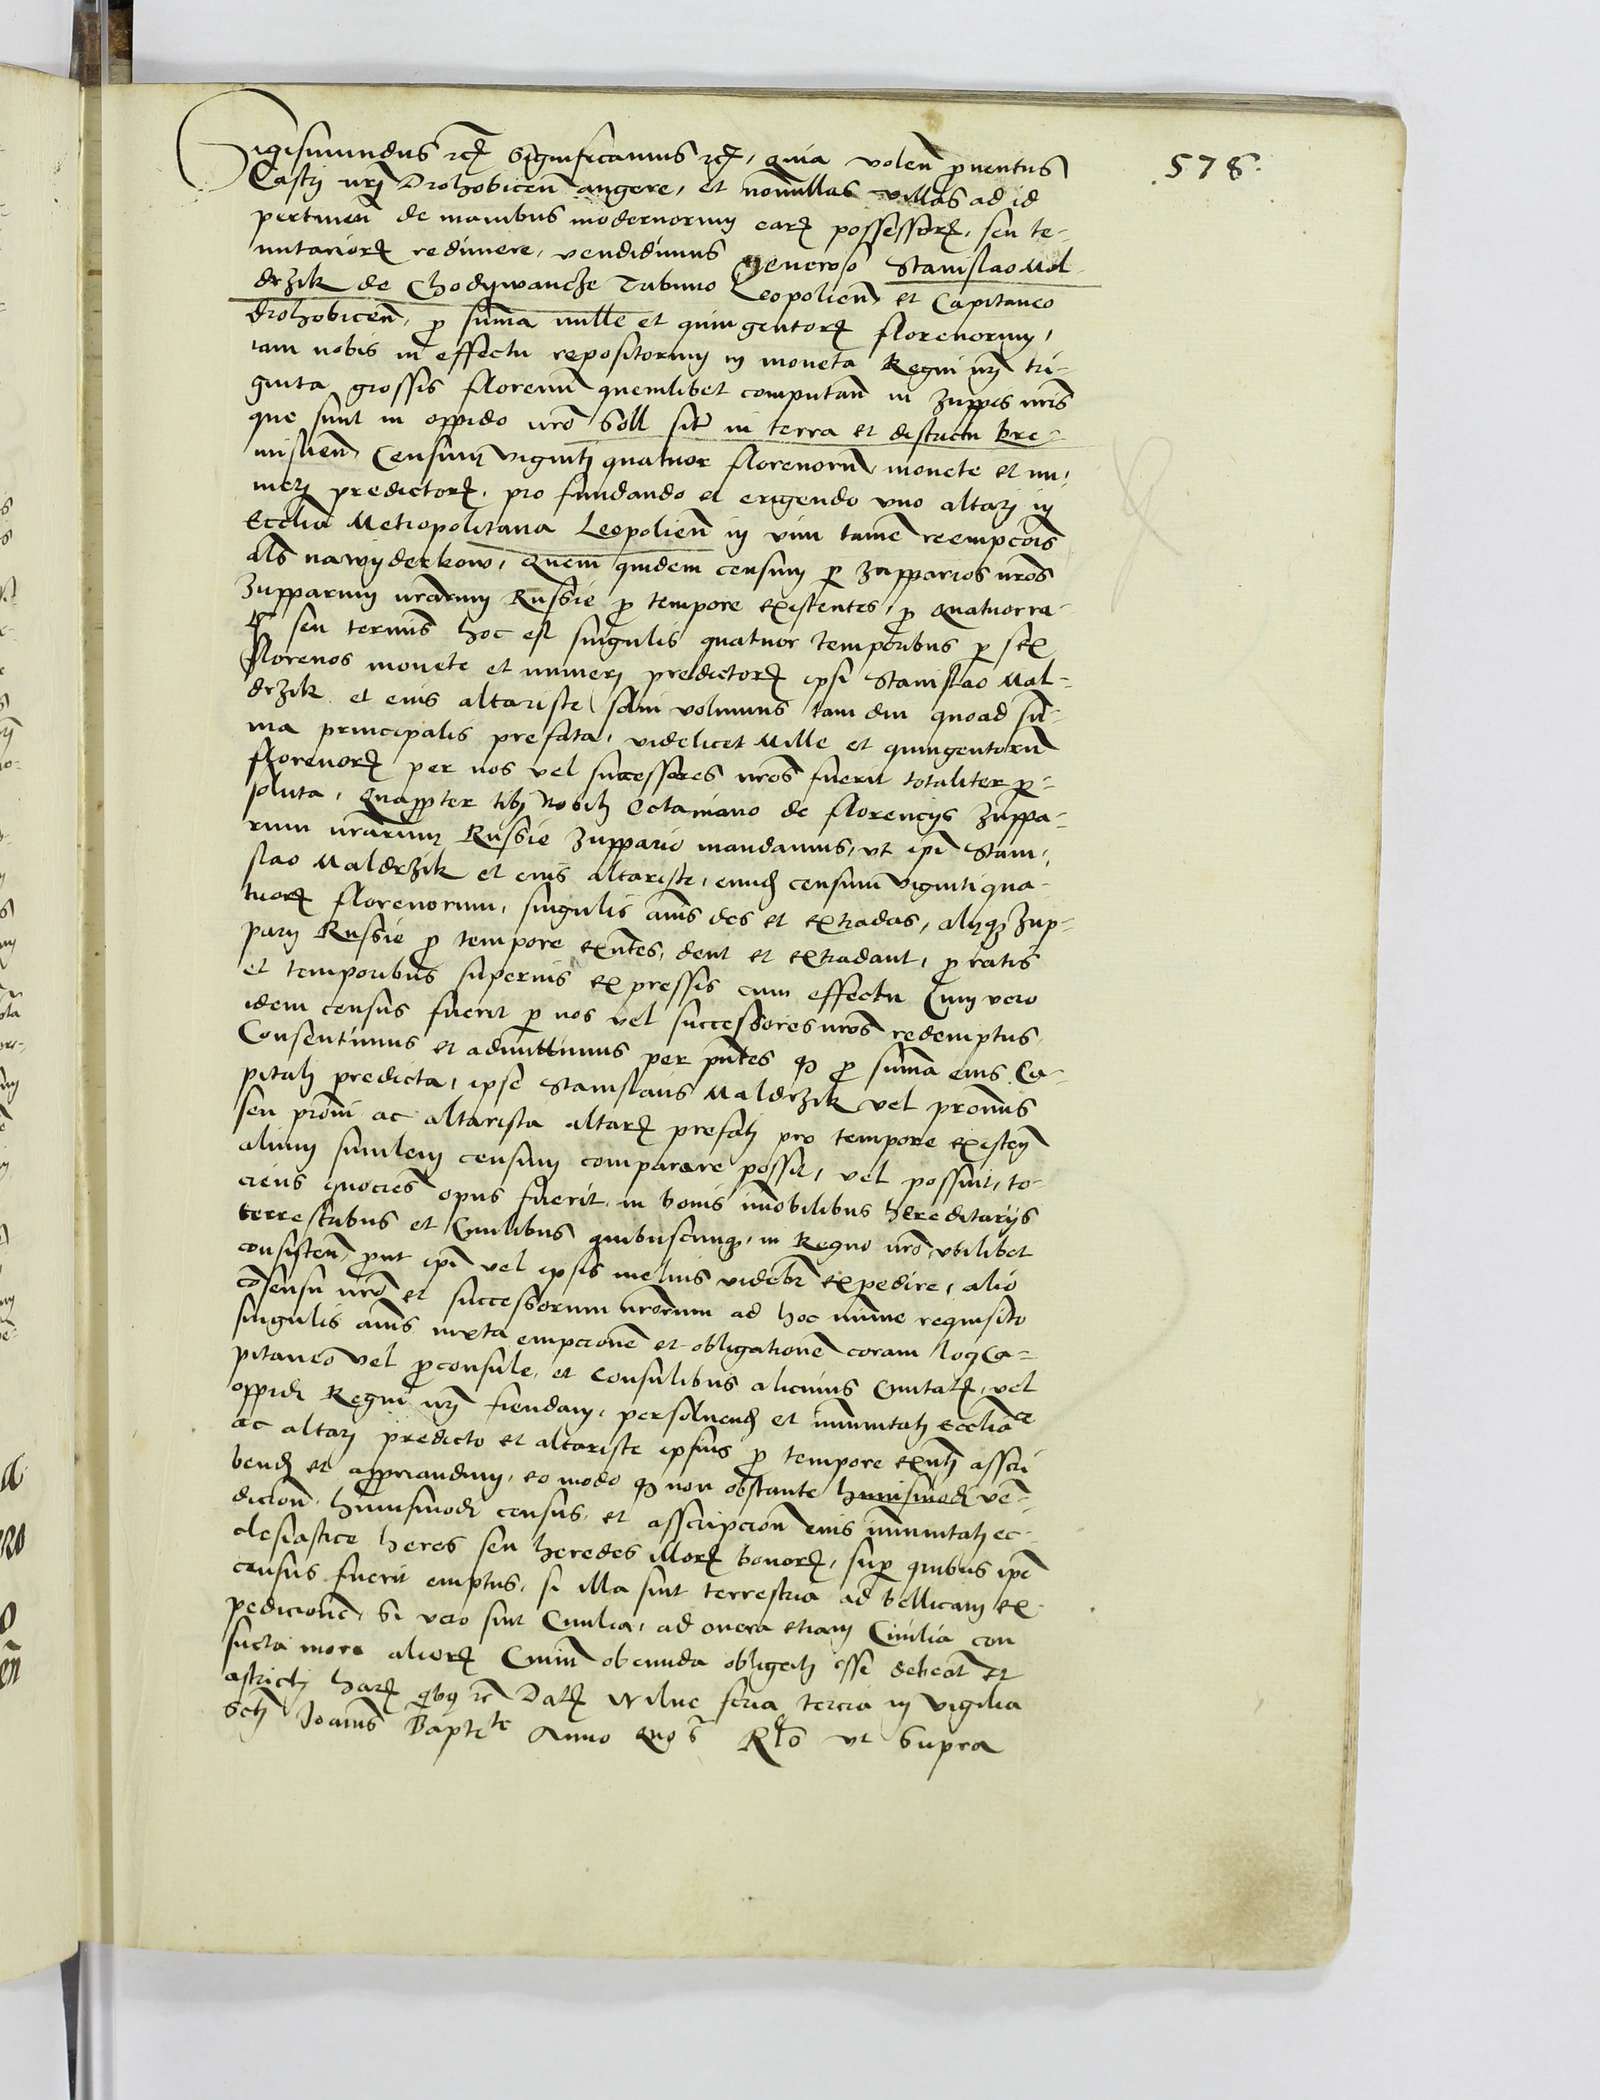 578.
Sigismundus rcz Significamus rcz, quia volen͂ ꝓventus
Castri nr͂i Drohobicen͂ augere, et nonnullas villas ad id
pertinen͂ de manibus modernorum earꝝ possessorꝝ, seu te-
nutariorꝝ redimere, vendidimus Generoso Stanislao Mal-
drzik de Chodywancze Tribuno Leopolien͂ et Capitaneo
Drohobicen͂, ꝓ summa mille et quingentorꝝ florenorum,
iam nobis in effectu repositorum in moneta Regni nr͂i tri-
ginta grossis florenum quemlibet computan͂ in zuppis nr͂is
que sunt in oppido nr͂o Soll sit͂ in terra et districtu Pre-
mislien͂ Censum viginti quatuor florenorum monete et nu-
meri predictorꝝ, pro fundando et erigendo uno altari in
Ecclia Metropolitana Leopolien͂ in vim tamen reempcois
als na wyderkow, Quem quidem censum ꝑ zupparios nr͂os
zupparum nr͂arum Russie ꝓ tempore existentes, ꝓ quatuor ra-
t seu terminis hoc est singulis quatuor temporibus ꝑ sex
florenos monete et numeri predictorꝝ ipsi Stanislao Mal-
drzik et eius altariste solui volumus tam diu quoad sum-
ma principalis prefata, videlicet Mille et quingentorum
florenorꝝ per nos vel successores nr͂os fuerit totaliter ꝑ-
soluta, Quaꝓpter tibi Nobili Octauiano de Florencijs zuppa-
rum nr͂arum Russie zuppario mandamus, vt ipi Stani-
slao Maldrzik et eius altariste, eund censum viginti qua-
tuorꝝ florenorum, singulis annis des et extradas, alijqꝫ zup-
parij Russie ꝓ tempore exntes, dent et extradant, ꝓ ratis
et temporibus superius expressis cum effectu Cum vero
idem census fuerit ꝑ nos vel successores nr͂os redemptus,
Consentimus et admittimus per pntes qꝫ ꝓ summa eius Ca-
pitali predicta, ipse Stanislaus Maldrzik vel proximus
seu proximi ac altarista altarꝝ prefati pro tempore existen͂
alium similem censum comparare possit, vel possint, to-
ciens quociens opus fuerit, in bonis immobilibus hereditarijs
terrestribus et Ciuilibus quibuscunqꝫ, in Regno nr͂o vbilibet
consisten͂, ꝓut ipi vel ipsis melius videbit͂ expedire, alio
consensu nr͂o et successorum nr͂orum ad hoc minime requisito
singulis annis iuxta empcionem et obligationem coram loci Ca-
pitaneo vel ꝓconsule, et Consulibus alicuius Ciuitatꝭ, vel
oppidi Regni nr͂i fiendam, persoluend et immunitati Ecclia͂ce
ac altari predicto et altariste ipsius ꝓ tempore exnti asscri
bend et apꝓriandum, eo modo qꝫ non obstante huiusmodi ven-
dicion͂ huiusmodi census, et asscripcion͂ eius immunitati ec-
clesiastice heres seu heredes illorꝝ bonorꝝ, suꝑ quibus ipe
census fuerit emptus, si illa sint terrestria ad bellicam ex-
pedicionem, Si vero sint Ciuilia, ad onera etiam Ciuilia con
sueta more aliorꝝ Ciuium obeunda obligati esse debeant et
astricti harꝝ qbus re͂ Datꝭ Wilne feria tercia in vigilia
Scti Joannis Baptiste Anno quo s͂ Rlo vt Supra